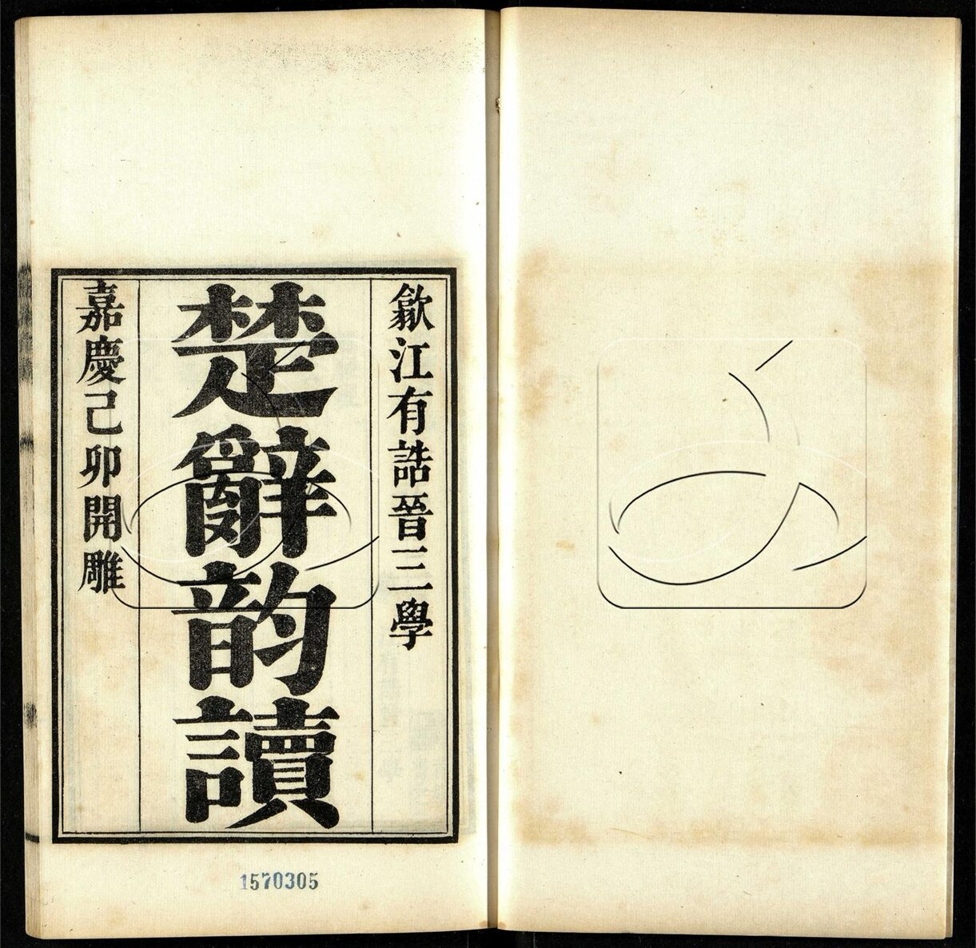 歙江有誥晉三學
楚辭韵讀
嘉慶己卯開雕
1570305